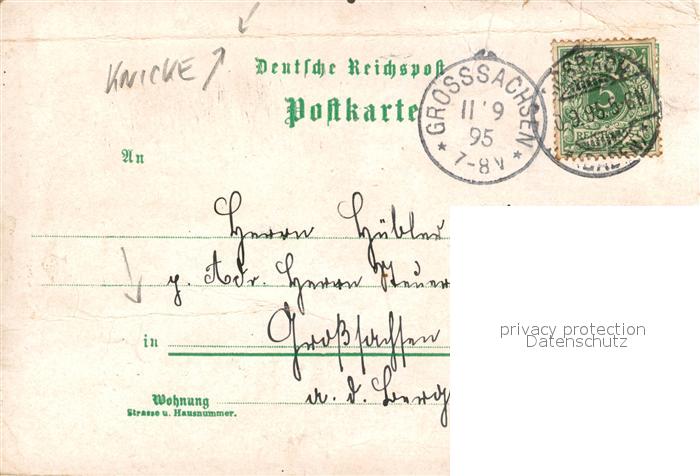 KNICKE
Deutsche Reichspost
Postkarte
GROSSSACHSEN
11 9
95
7-8V
5
REICHSPOST
An
Herrn Hübler
p. Adr. Herrn Steuer
in Großsachsen
a. d. Berg
Wohnung
Strasse u. Hausnummer.
privacy protection
Datenschutz